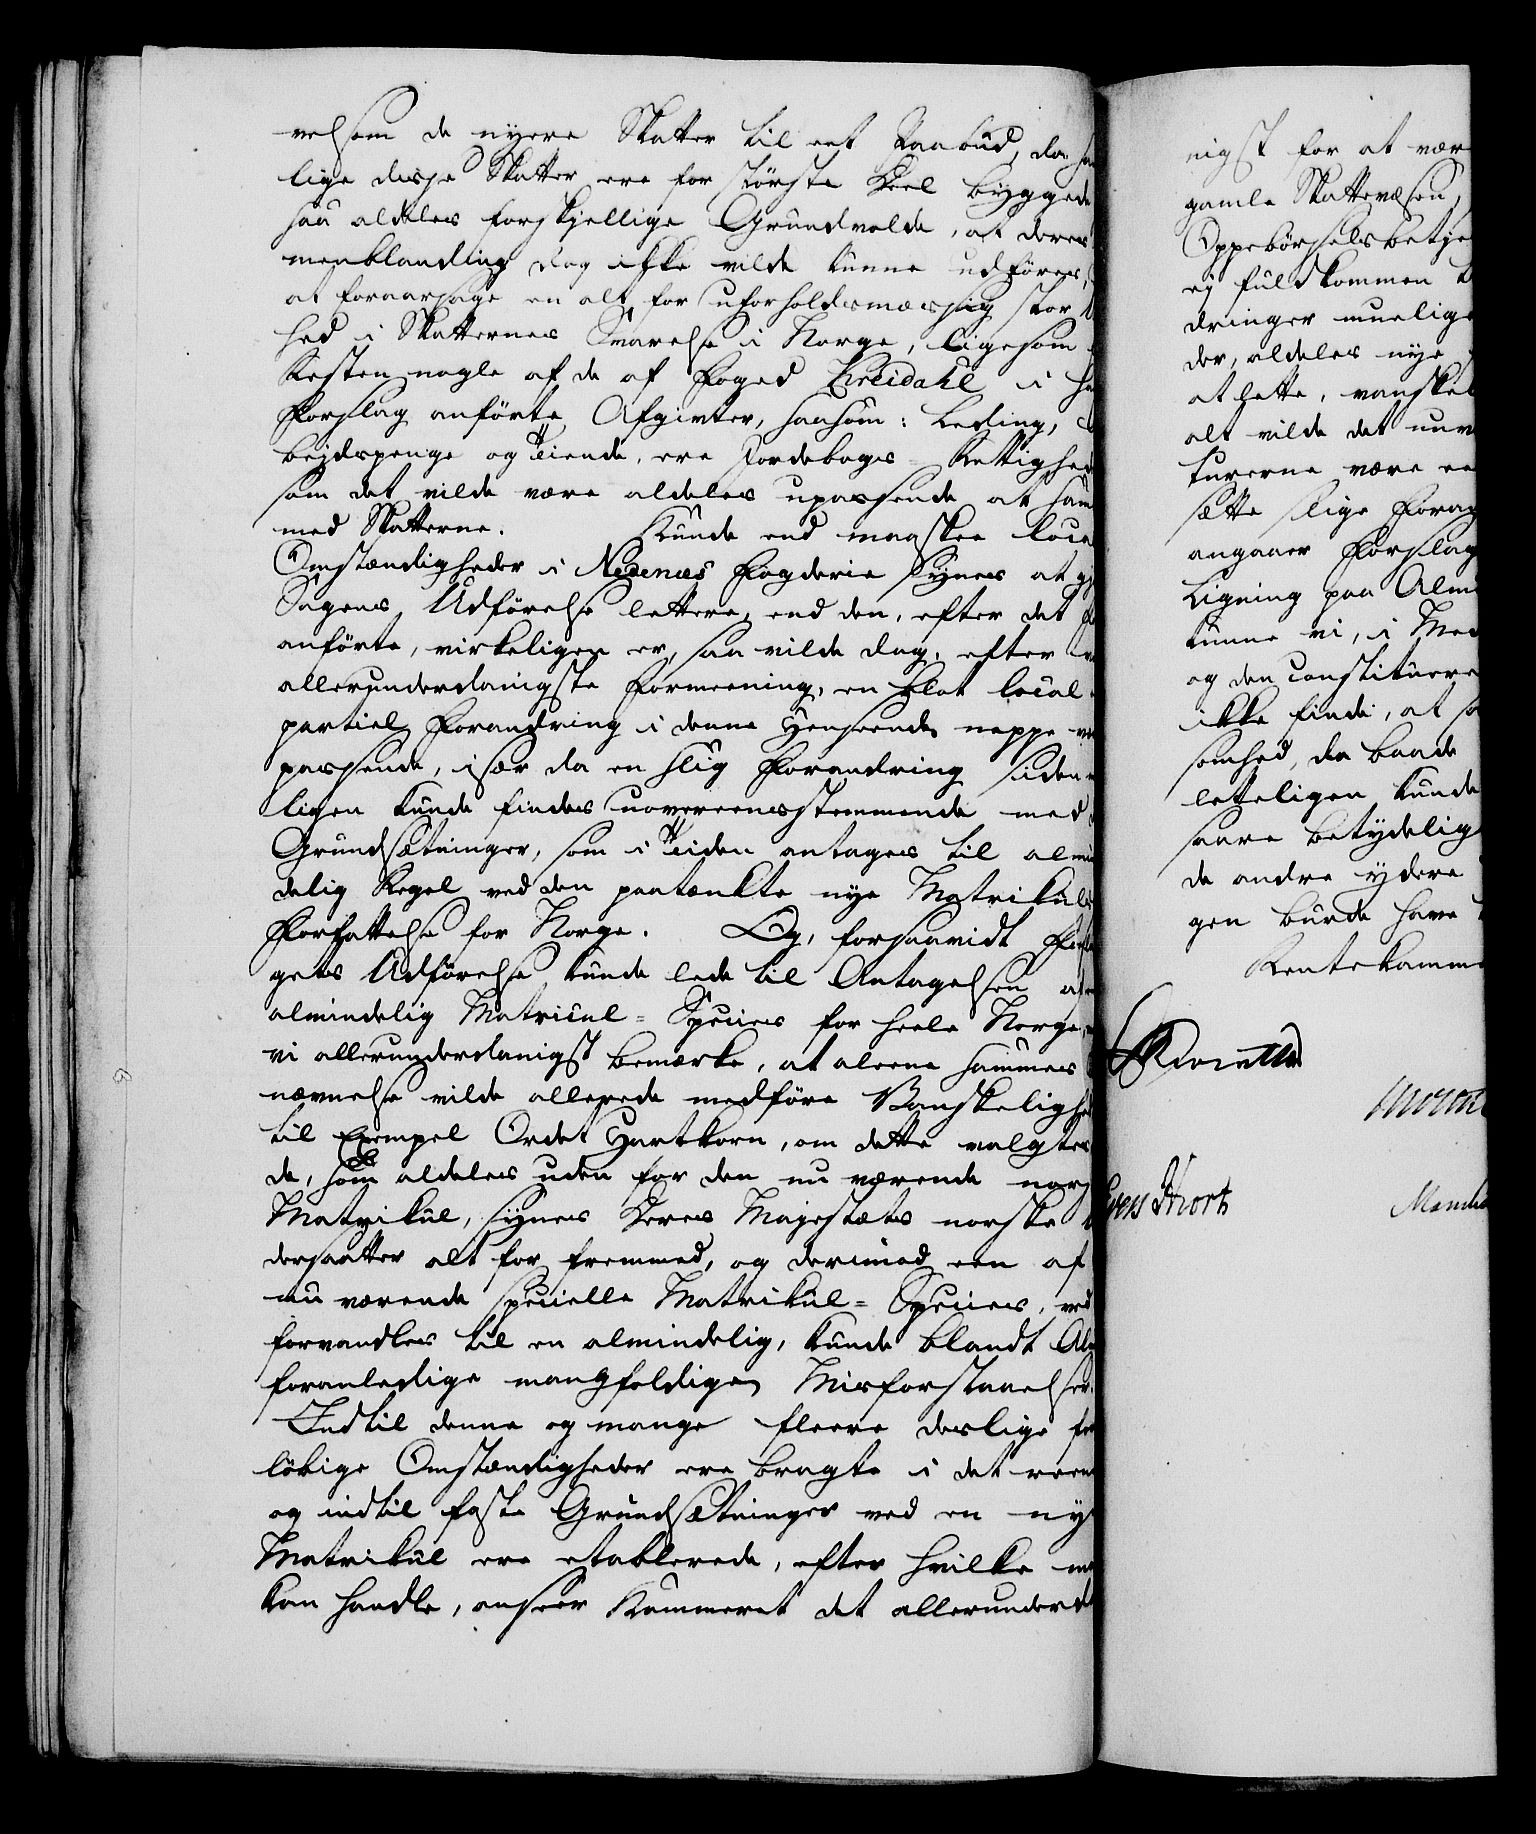 velsom de nyere Skatter til eet Paabud, da
lige disse Skatter ere for største Deel byggede
saa aldeles forskjellige Grundvolde, at deres
menblanding dog ikke vilde kunne udføres,
at foraarsage en alt for uforholdsmæssig stor
hed i Skatternes Svarelse i Norge, ligesom
Resten nogle af de af Foged Breidahl i
Forslag anførte Afgivter, saasom: Leding,
bejdspenge og Tiende, ere Jordebogs-Rettighed
som det vilde være aldeles upassende at
med Skatterne. Kunde end maaskee loca
Omstændigheder i Nedenæs Fogderie synes at
Sagens Udførelse lettere, end den, efter det
anførte, virkeligen er, saa vilde dog, efter
allerunderdanigste Formeening, en blot local
partiel Forandring i denne Henseende neppe
passende, især da en slig Forandring siden
ligen kunde findes uovereensstemmende med
Grundsætninger, som i Tiden antages til almin
delig Regel ved den paatænkte nye Matrikuls
Forfattelse for Norge. Og, forsaavidt
gets Udførelse kunde lede til Antagelsen
almindelig Matricul-Species for heele Norge,
vi allerunderdanigst bemærke, at alene sammes
nævnelse vilde allerede medføre Vanskelighed
til Exempel Ordet Hartkorn, om dette valgtes
de, som aldeles uden for den nu værende nors
Matrikul, synes Deres Majestæts norske
dersaatter alt for fremmed, og derimod een af
nu værende specielle Matrikul-Species, ved
forvandles til en almindelig, kunde blandt Al
foranledige mangfoldige Misforstaaelser.
Indtil denne og mange fleere deslige
løbige Omstændigheder ere bragte i det reene
og indtil faste Grundsætninger ved en ny
Matrikul ere etablerede, efter hvilke
kan handle, anseer Kammeret det allerunderd
nigst for at vær
gamle Skattevæsen,
Oppebørselsbetje
ej fuldkommen
dringer muelige
der, aldeles nye
at lette, vanskel
alt vilde det
turerne være
sætte slige Forag
angaaer Forslag
Ligning paa Alm
kunne vi, i Med
og den constituere
ikke finde, at
somhed, da baade
letteligen kunde
saare betydelig
de andre ydere
gen burde have
Rentekamm